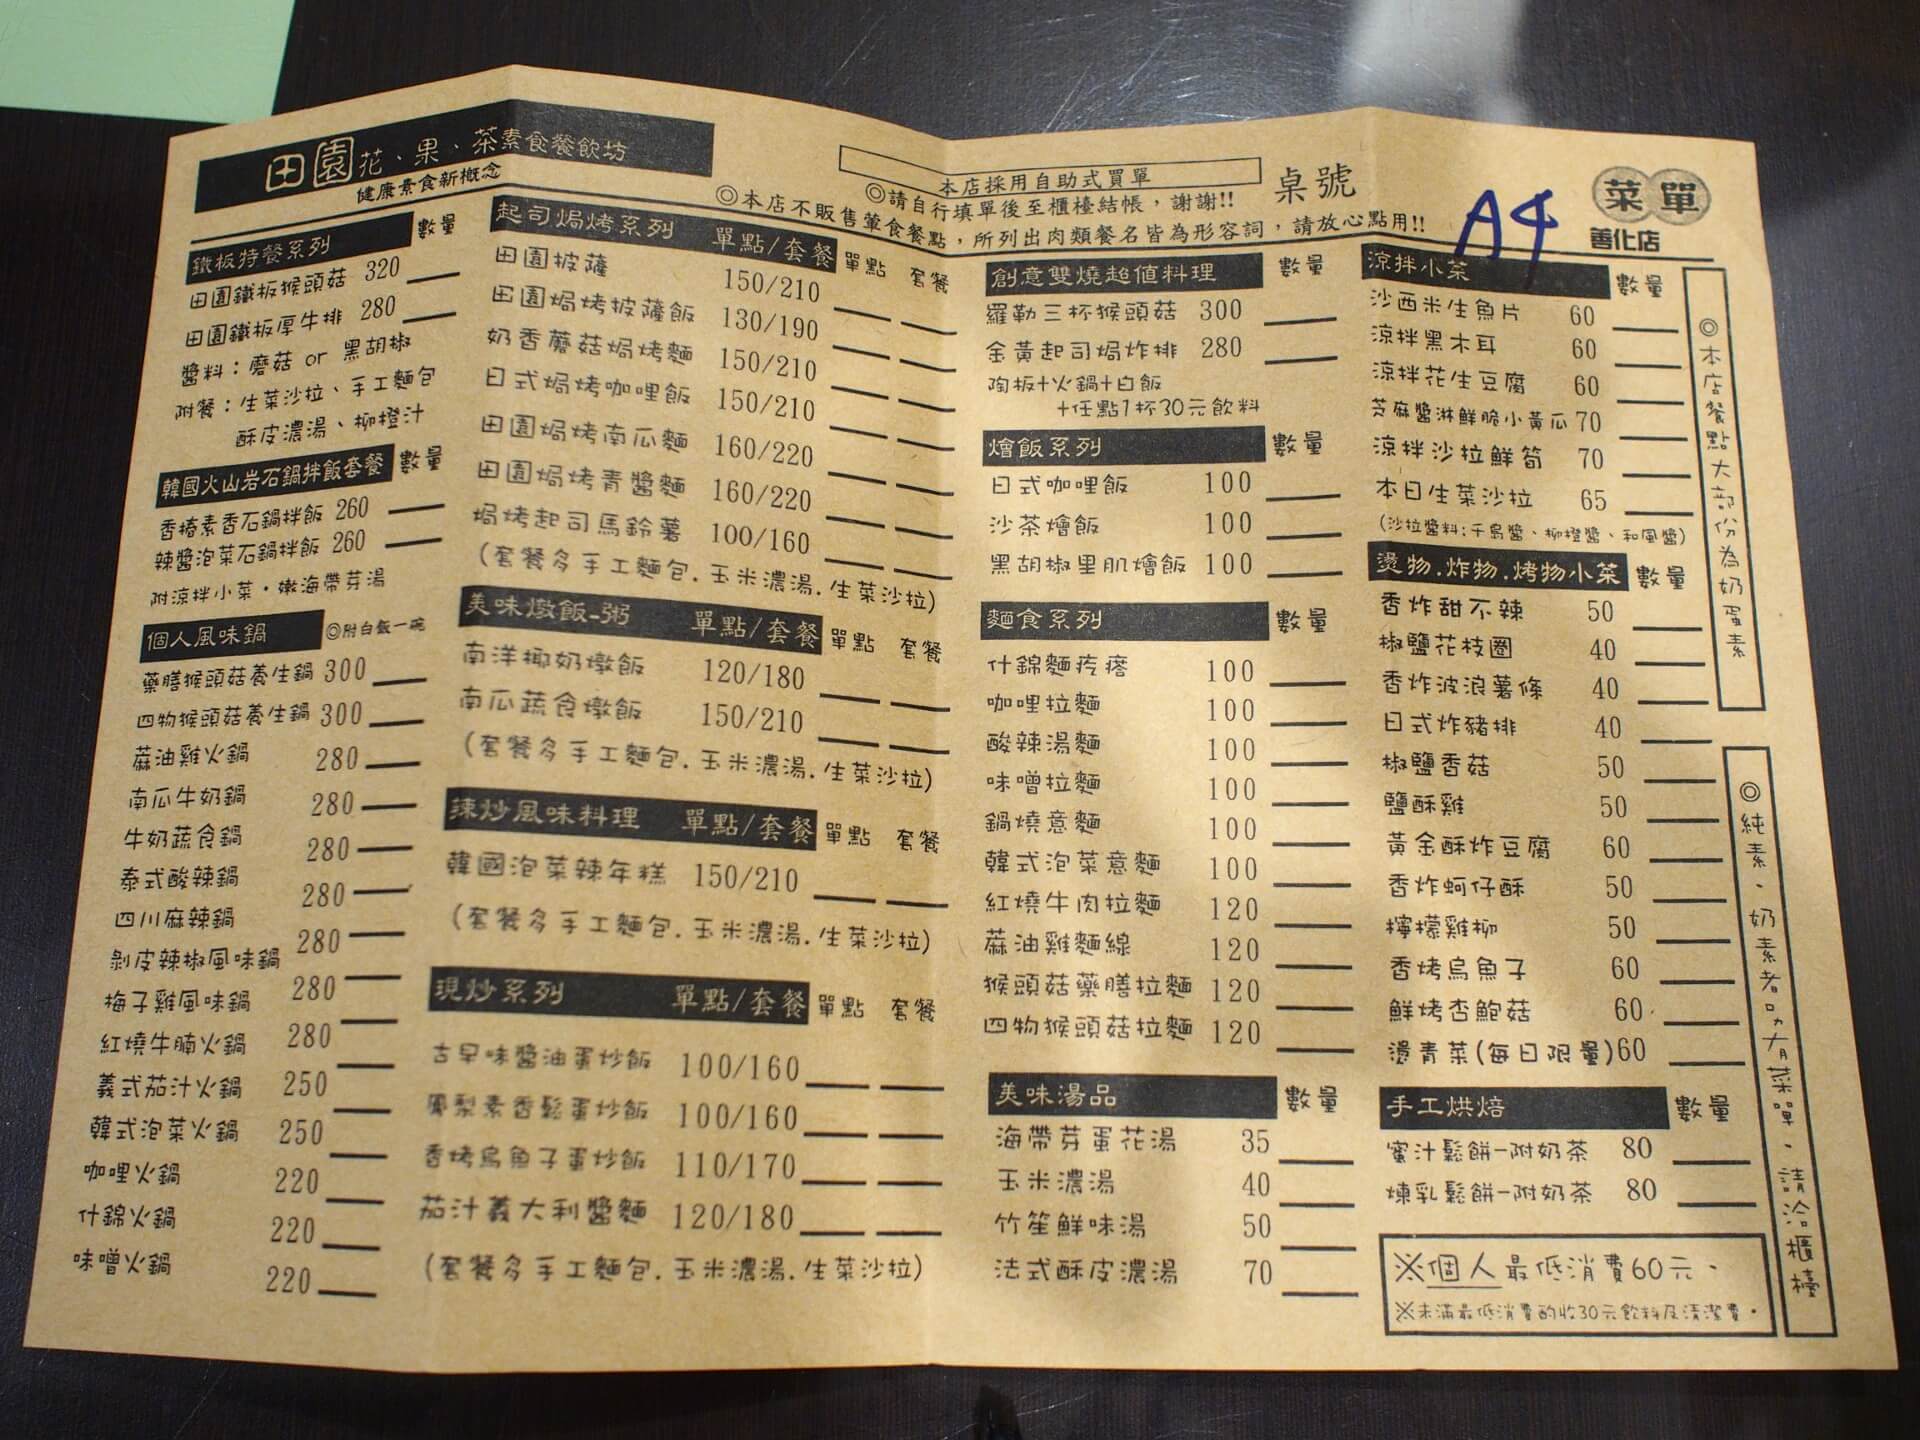 田園花、果、茶素食餐飲坊
健康素食新概念
本店採用自助式買單
◎請自行填單後至櫃檯結帳，謝謝!!
◎本店不販售葷食餐點，所列出肉類餐名皆為形容詞，請放心點用!!
桌號
A4
菜單
善化店
鐵板特餐系列 數量
田園鐵板猴頭菇 320
田園鐵板厚牛排 280
醬料：磨菇 or 黑胡椒
附餐：生菜沙拉、手工麵包
酥皮濃湯、柳橙汁
韓國火山岩石鍋拌飯套餐 數量
香椿素香石鍋拌飯 260
辣醬泡菜石鍋拌飯 260
附涼拌小菜・嫩海帶芽湯
個人風味鍋 ◎附白飯一碗
藥膳猴頭菇養生鍋 300
四物猴頭菇養生鍋 300
蔴油雞火鍋 280
南瓜牛奶鍋 280
牛奶蔬食鍋 280
泰式酸辣鍋 280
四川麻辣鍋 280
剝皮辣椒風味鍋 280
梅子雞風味鍋 280
紅燒牛腩火鍋 250
義式茄汁火鍋 250
韓式泡菜火鍋 220
咖哩火鍋 220
什錦火鍋 220
味噌火鍋
起司焗烤系列 單點/套餐 單點 套餐
田園披薩 150/210
田園焗烤披薩飯 130/190
奶香蘑菇焗烤麵 150/210
日式焗烤咖哩飯 150/210
田園焗烤南瓜麵 160/220
田園焗烤青醬麵 160/220
焗烤起司馬鈴薯 100/160
(套餐多手工麵包.玉米濃湯.生菜沙拉)
美味燉飯-粥 單點/套餐 單點 套餐
南洋椰奶燉飯 120/180
南瓜蔬食燉飯 150/210
(套餐多手工麵包.玉米濃湯.生菜沙拉)
辣炒風味料理 單點/套餐 單點 套餐
韓國泡菜辣年糕 150/210
(套餐多手工麵包.玉米濃湯.生菜沙拉)
現炒系列 單點/套餐 單點 套餐
古早味醬油蛋炒飯 100/160
鳳梨素香鬆蛋炒飯 100/160
香烤烏魚子蛋炒飯 110/170
茄汁義大利醬麵 120/180
(套餐多手工麵包.玉米濃湯.生菜沙拉)
創意雙燒超值料理 數量
羅勒三杯猴頭菇 300
金黃起司焗炸排 280
陶板+火鍋+白飯
+任點1杯30元飲料
燴飯系列 數量
日式咖哩飯 100
沙茶燴飯 100
黑胡椒里肌燴飯 100
麵食系列 數量
什錦麵疙瘩 100
咖哩拉麵 100
酸辣湯麵 100
味噌拉麵 100
鍋燒意麵 100
韓式泡菜意麵 100
紅燒牛肉拉麵 120
蔴油雞麵線 120
猴頭菇藥膳拉麵 120
四物猴頭菇拉麵 120
美味湯品 數量
海帶芽蛋花湯 35
玉米濃湯 40
竹笙鮮味湯 50
法式酥皮濃湯 70
涼拌小菜 數量
沙西米生魚片 60
涼拌黑木耳 60
涼拌花生豆腐 60
芝麻醬淋鮮脆小黃瓜 70
涼拌沙拉鮮筍 70
本日生菜沙拉 65
(沙拉醬料:千島醬、柳橙醬、和風醬)
燙物.炸物.烤物小菜 數量
香炸甜不辣 50
椒鹽花枝圈 40
香炸波浪薯條 40
日式炸豬排 40
椒鹽香菇 50
鹽酥雞 50
黃金酥炸豆腐 60
香炸蚵仔酥 50
檸檬雞柳 50
香烤烏魚子 60
鮮烤杏鮑菇 60
燙青菜(每日限量) 60
手工烘焙 數量
蜜汁鬆餅-附奶茶 80
煉乳鬆餅-附奶茶 80
※個人最低消費60元、
※未滿最低消費酌收30元飲料及清潔費。
◎本店餐點大部份為奶蛋素
◎純素、奶素者另有菜單、請洽櫃檯